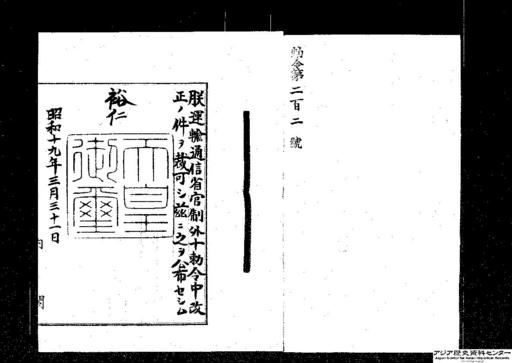 勅令第二百二號
朕運輸通信省官制外十勅令中改
正ノ件ヲ裁可シ茲ニ之ヲ公布セシム
裕仁
天皇御璽
昭和十九年三月三十一日
内閣
アジア歴史資料センター
Japan Center for Asian Historical Records